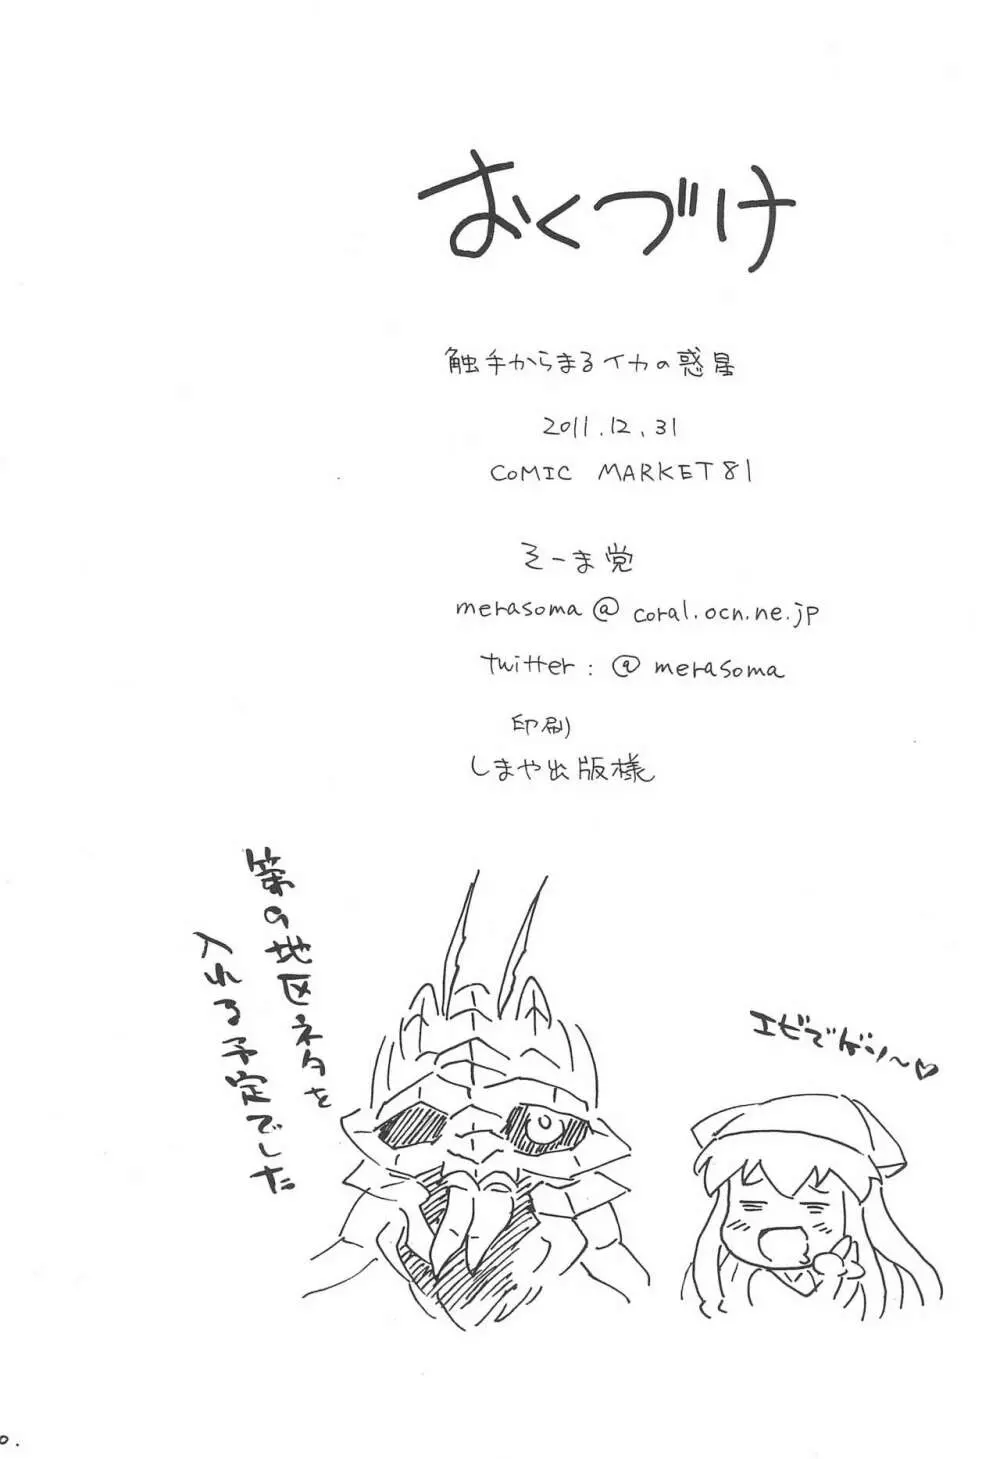 おくづけ
触手からまるイカの惑星
2011.12.31
COMIC MARKET81
そーま党
merasoma@coral.ocn.ne.jp
twitter:@merasoma
印刷
しまや出版様
第9地区ネタを
入れる予定でした
エビでゲソ～♡